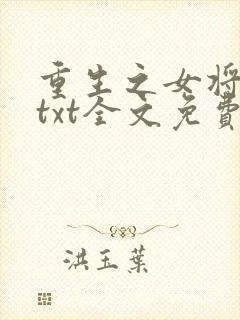 重生之女将
txt全文免費
洪玉葉